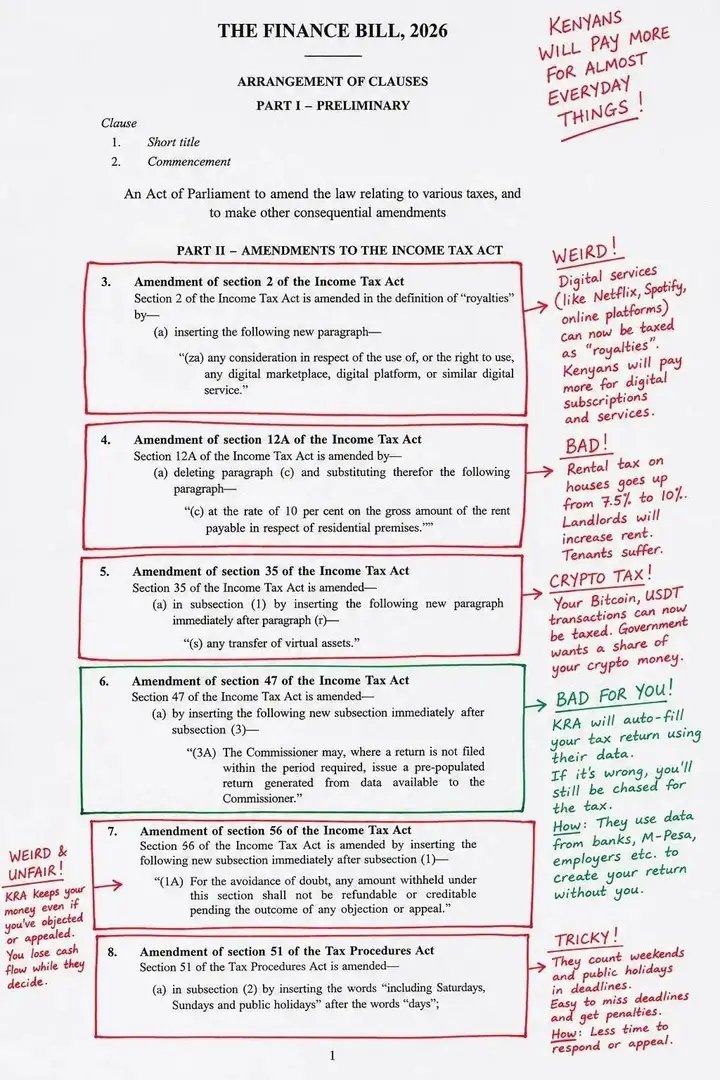 THE FINANCE BILL, 2026
KENYANS
WILL PAY MORE
FOR ALMOST
EVERYDAY
THINGS!
ARRANGEMENT OF CLAUSES
PART I – PRELIMINARY
Clause
1. Short title
2. Commencement
An Act of Parliament to amend the law relating to various taxes, and
to make other consequential amendments
PART II – AMENDMENTS TO THE INCOME TAX ACT
3. Amendment of section 2 of the Income Tax Act
Section 2 of the Income Tax Act is amended in the definition of “royalties”
by—
(a) inserting the following new paragraph—
“(za) any consideration in respect of the use of, or the right to use,
any digital marketplace, digital platform, or similar digital
service.”
WEIRD!
Digital services
(like Netflix, Spotify,
online platforms)
can now be taxed
as “royalties”.
Kenyans will pay
more for digital
subscriptions
and services.
4. Amendment of section 12A of the Income Tax Act
Section 12A of the Income Tax Act is amended by—
(a) deleting paragraph (c) and substituting therefor the following
paragraph—
“(c) at the rate of 10 per cent on the gross amount of the rent
payable in respect of residential premises.””
BAD!
Rental tax on
houses goes up
from 7.5% to 10%.
Landlords will
increase rent.
Tenants suffer.
5. Amendment of section 35 of the Income Tax Act
Section 35 of the Income Tax Act is amended—
(a) in subsection (1) by inserting the following new paragraph
immediately after paragraph (r)—
“(s) any transfer of virtual assets.”
CRYPTO TAX!
Your Bitcoin, USDT
transactions can now
be taxed. Government
wants a share of
your crypto money.
6. Amendment of section 47 of the Income Tax Act
Section 47 of the Income Tax Act is amended—
(a) by inserting the following new subsection immediately after
subsection (3)—
“(3A) The Commissioner may, where a return is not filed
within the period required, issue a pre-populated
return generated from data available to the
Commissioner.”
BAD FOR YOU!
KRA will auto-fill
your tax return using
their data.
If it's wrong, you'll
still be chased for
the tax.
How: They use data
from banks, M-Pesa,
employers etc. to
create your return
without you.
7. Amendment of section 56 of the Income Tax Act
Section 56 of the Income Tax Act is amended by inserting the
following new subsection immediately after subsection (1)—
“(1A) For the avoidance of doubt, any amount withheld under
this section shall not be refundable or creditable
pending the outcome of any objection or appeal.”
WEIRD &
UNFAIR!
KRA keeps your
money even if
you've objected
or appealed.
You lose cash
flow while they
decide.
8. Amendment of section 51 of the Tax Procedures Act
Section 51 of the Tax Procedures Act is amended—
(a) in subsection (2) by inserting the words “including Saturdays,
Sundays and public holidays” after the words “days”;
TRICKY!
They count weekends
and public holidays
in deadlines.
Easy to miss deadlines
and get penalties.
How: Less time to
respond or appeal.
1